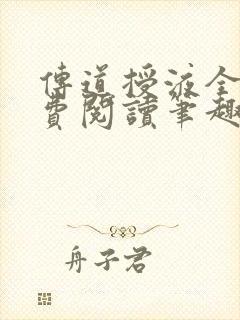 傳道授液全
費閱讀筆趣
舟子君